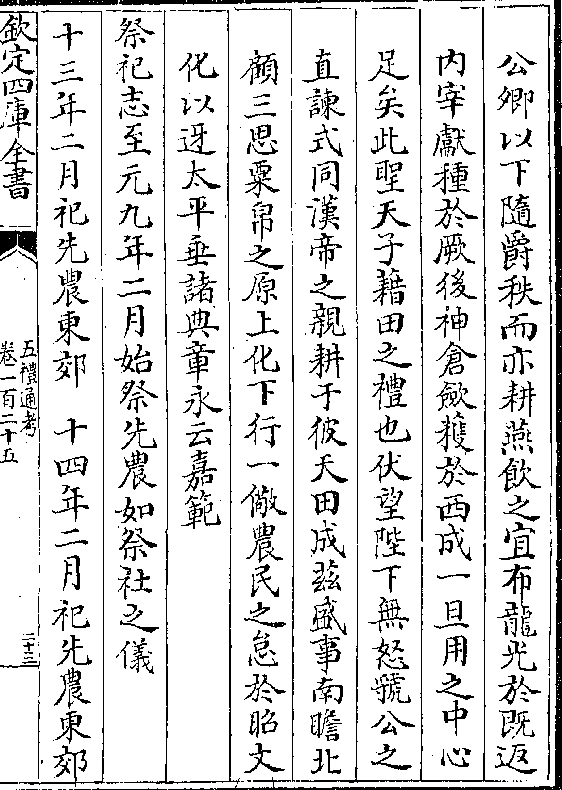 公卿以下隨爵秩而亦耕燕飲之宜布龍光於既返
内宰獻種於厥後神倉斂穫於西成一旦用之中心
足矣此聖天子藉田之禮也伏望陛下無怒虢公之
直諫式同漢帝之親耕于彼天田成兹盛事南瞻北
顧三思粟帛之原上化下行一儆農民之怠於昭文
化以迓太平垂諸典章永云嘉範
祭祀志至元九年二月始祭先農如祭社之儀
十三年二月祀先農東郊 十四年二月祀先農東郊
欽定四庫全書
五禮通考
卷一百二十五
二十三